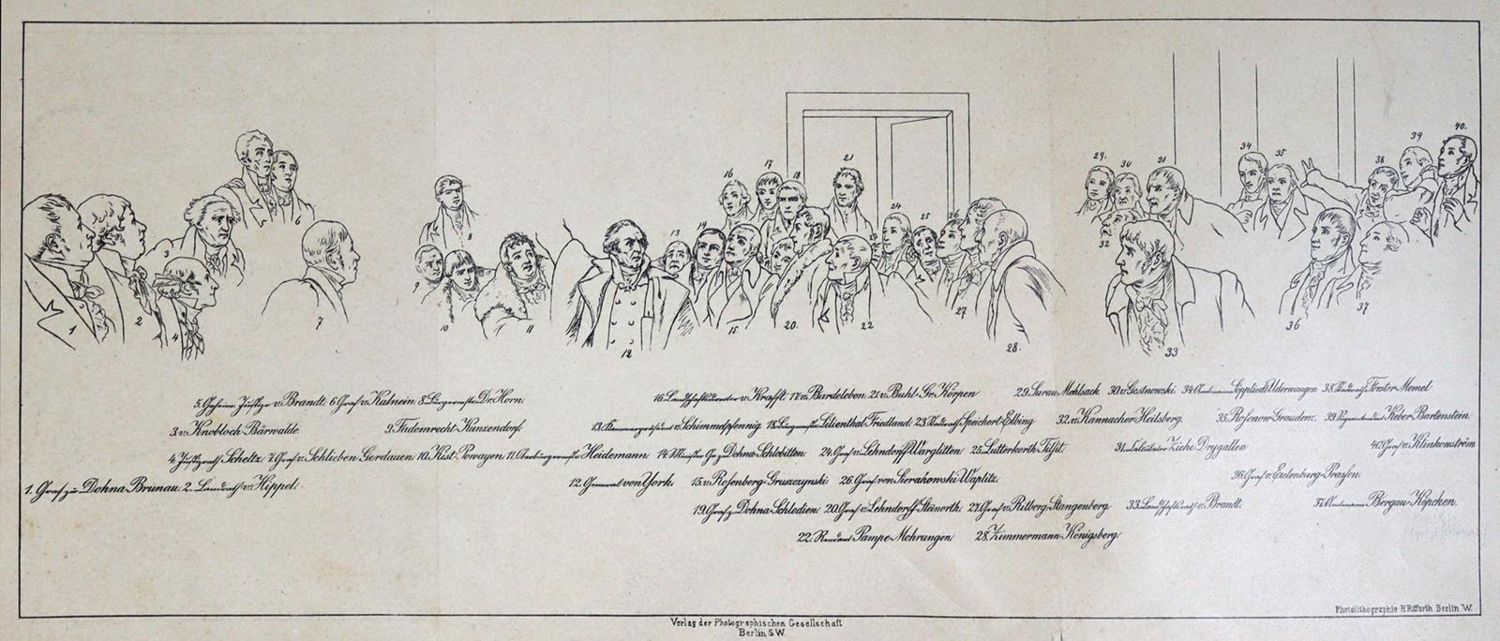 40.
39
21
17
16
18
29.
30
31
34
35
38
19
13
24
25
26
6
8
3
32
9
27
37
36
1
2
4
7
10
11
12
15
20.
22
28.
33
5. Geheime Justizr v. Brandt. 6. Graf v. Kalnein. 8. Dr. Horn.
16. v. Krafft. 17. v. Bardeleben. 21. v. Buhl-Gr. Köppen
29. Surau-Mehlsack 30. v. Gostnowski. 34. 38. Förster-Memel
3. v. Knobloch-Bärwalde.
9. Friedenrecht-Künzendorf
13. v. Schimmelpfennig 18. Lilienthal-Friedland. 23. Speichert-Elbing
32. v. Kannacher-Heilsberg. 35. Rosenow-Graudenz. 39. Keber-Bartenstein.
4. Justizrath Scheltz. 7. Graf v. Schlieben-Gerdauen 10. Kist-Powayen 11. Heidemann 14. Minister Gr. z. Dohna-Schlobitten 24. Graf v. Lehndorff-Warglitten 25. Lutterkorth-Tilsit.
31. Ziehe-Drygallen
40. Graf v. Klinkonström
1. Graf zu Dohna-Brunau. 2. Landrath v. Hippel.
12. General von York. 15. v. Rosenberg-Gruszczynski 26. Graf von Sierakowski-Waplitz.
36. Graf v. Eulenburg-Prassen.
19. Graf z. Dohna-Schlodien 20. Graf v. Lehndorff-Steinorth. 27. Graf v. Ritberg-Stangenberg.
33. Landschaftsrath v. Brandt.
37. Amtmann Bergau-Köpcken.
22. Rendant Pampe-Mohrungen 28. Zimmermann-Königsberg
Photolithographie H. Riffarth Berlin W.
Verlag der Photographischen Gesellschaft
Berlin, S.W.